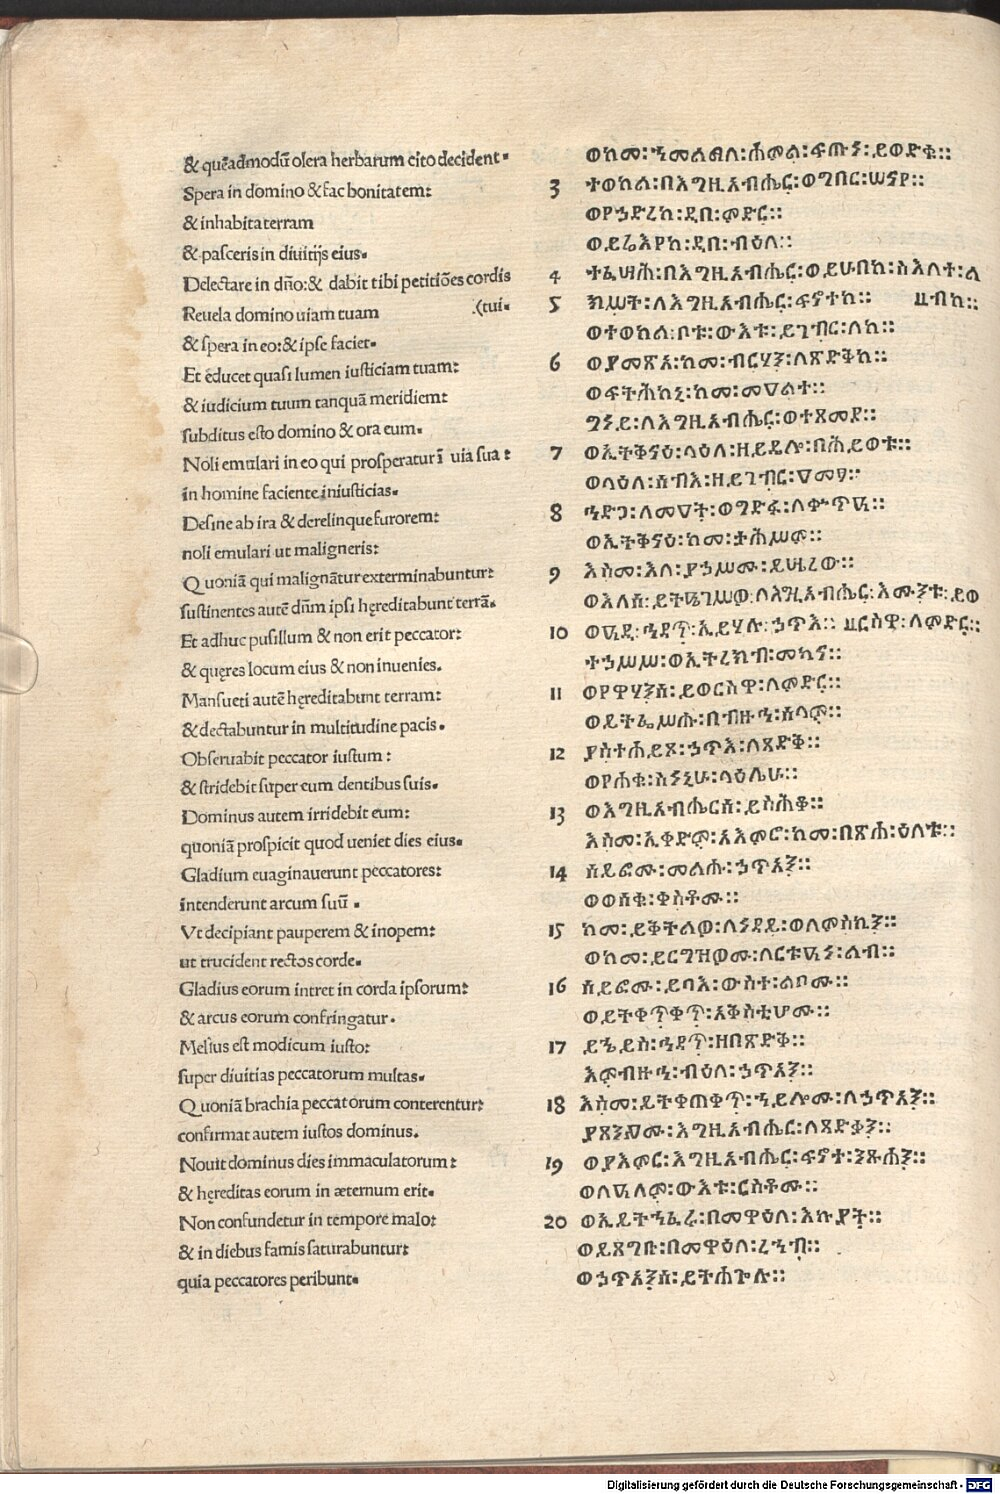 & quēadmodū olera herbarum cito decident.
Spera in domino & fac bonitatem:
& inhabita terram
& pasceris in diuitijs eius.
Delectare in dño:& dabit tibi petitiões cordis
Reuela domino uiam tuam (tui.
& spera in eo:& ipse faciet.
Et educet quasi lumen iusticiam tuam:
& iudicium tuum tanquā meridiem:
subditus esto domino & ora eum.
Noli emulari in eo qui prosperatur ī uia sua:
in homine faciente iniusticias.
Desine ab ira & derelinque furorem:
noli emulari ut maligneris:
Quoniā qui malignātur exterminabuntur:
sustinentes autē dñm ipsi hęreditabunt terrā.
Et adhuc pusillum & non erit peccator:
& quęres locum eius & non inuenies.
Mansueti autē hęreditabunt terram:
& dectabuntur in multitudine pacis.
Obseruabit peccator iustum:
& stridebit super eum dentibus suis.
Dominus autem irridebit eum:
quoniā prospicit quod ueniet dies eius.
Gladium euaginauerunt peccatores:
intenderunt arcum suū.
Vt decipiant pauperem & inopem:
ut trucident rectos corde.
Gladius eorum intret in corda ipsorum:
& arcus eorum confringatur.
Melius est modicum iusto:
super diuitias peccatorum multas.
Quoniā brachia peccatorum conterentur:
confirmat autem iustos dominus.
Nouit dominus dies immaculatorum:
& hęreditas eorum in æternum erit.
Non confundetur in tempore malo:
& in diebus famis saturabuntur:
quia peccatores peribunt.
ወከመ፡ኀመልማለ፡ሐመል፡ፍጡነ፡ይወድቁ፡፡
3 ተወከል፡በእግዚአብሔር፡ወግበር፡ሠናየ፡፡
ወየኃድረከ፡ዲበ፡ምድር፡፡
ወይሬእየከ፡ዲበ፡ብዕለ፡፡
4 ተፈሣሕ፡በእግዚአብሔር፡ወይሁበከ፡ስእለተ፡ል
5 ክሥት፡ለእግዚአብሔር፡ፍኖተከ፡፡ ዘብከ፡፡
ወተወከል፡ቦቱ፡ውእቱ፡ይገብር፡ለከ፡፡
6 ወያመጽእ፡ከመ፡ብርሃን፡ለጽድቅከ፡፡
ወፍትሕከኒ፡ከመ፡መዓልተ፡፡
ግነይ፡ለእግዚአብሔር፡ወተጸመደ፡፡
7 ወኢትቅናዕ፡ላዕለ፡ዘይዴሎ፡በሕይወቱ፡፡
ወላዕለ፡ሰብእ፡ዘይገብር፡ዓመፃ፡፡
8 ኀድጋ፡ለመዓት፡ወግድፋ፡ለቍጥዓ፡፡
ወኢትቅናዕ፡ከመ፡ታሕሥም፡፡
9 እስመ፡እለ፡ያኃሥሙ፡ይሤረው፡፡
ወእለሰ፡ይትዔገሥዎ፡ለእግዚአብሔር፡እሙንቱ፡ይወ
10 ወዓዲ፡ኀዳጥ፡ኢይሃሉ፡ኃጥእ፡፡ ርስዋ፡ለምድር፡፡
ተኃሥሥ፡ወኢትረክብ፡መካኖ፡፡
11 ወየዋሃንሰ፡ይወርስዋ፡ለምድር፡፡
ወይትፌሥሑ፡በብዙኀ፡ሰላም፡፡
12 ያስተሐይጽ፡ኃጥእ፡ለጻድቅ፡፡
ወየሐቂ፡ስነኒሁ፡ላዕሌሁ፡፡
13 ወእግዚአብሔርሰ፡ይስሕቆ፡፡
እስመ፡ኢቀድም፡አእምሮ፡ከመ፡በጽሐ፡ዕለቱ፡፡
14 ሰይፎሙ፡መልሑ፡ኃጥአን፡፡
ወወሰቁ፡ቀስቶሙ፡፡
15 ከመ፡ይቅትልዎ፡ለነዳይ፡ወለምስኪን፡፡
ወከመ፡ይርግዝዎሙ፡ለርቱዓነ፡ልብ፡፡
16 ሰይፎሙ፡ይባእ፡ውስተ፡ልቦሙ፡፡
ወይትቀጥቀጥ፡አቅስቲሆሙ፡፡
17 ይኄይስ፡ኀዳጥ፡ዘበጽድቅ፡፡
እምብዙኀ፡ብዕለ፡ኃጥአን፡፡
18 እስመ፡ይትቀጠቀጥ፡ኀይሎሙ፡ለኃጥአን፡፡
ያጸንዖሙ፡እግዚአብሔር፡ለጻድቃን፡፡
19 ወያአምር፡እግዚአብሔር፡ፍኖተ፡ንጹሐን፡፡
ወለዓለም፡ውእቱ፡ርስቶሙ፡፡
20 ወኢይትኀፈሩ፡በመዋዕለ፡እኩያት፡፡
ወይጸግቡ፡በመዋዕለ፡ረኀብ፡፡
ወኃጥአንሰ፡ይትሐጐሉ፡፡
Digitalisierung gefördert durch die Deutsche Forschungsgemeinschaft - DFG